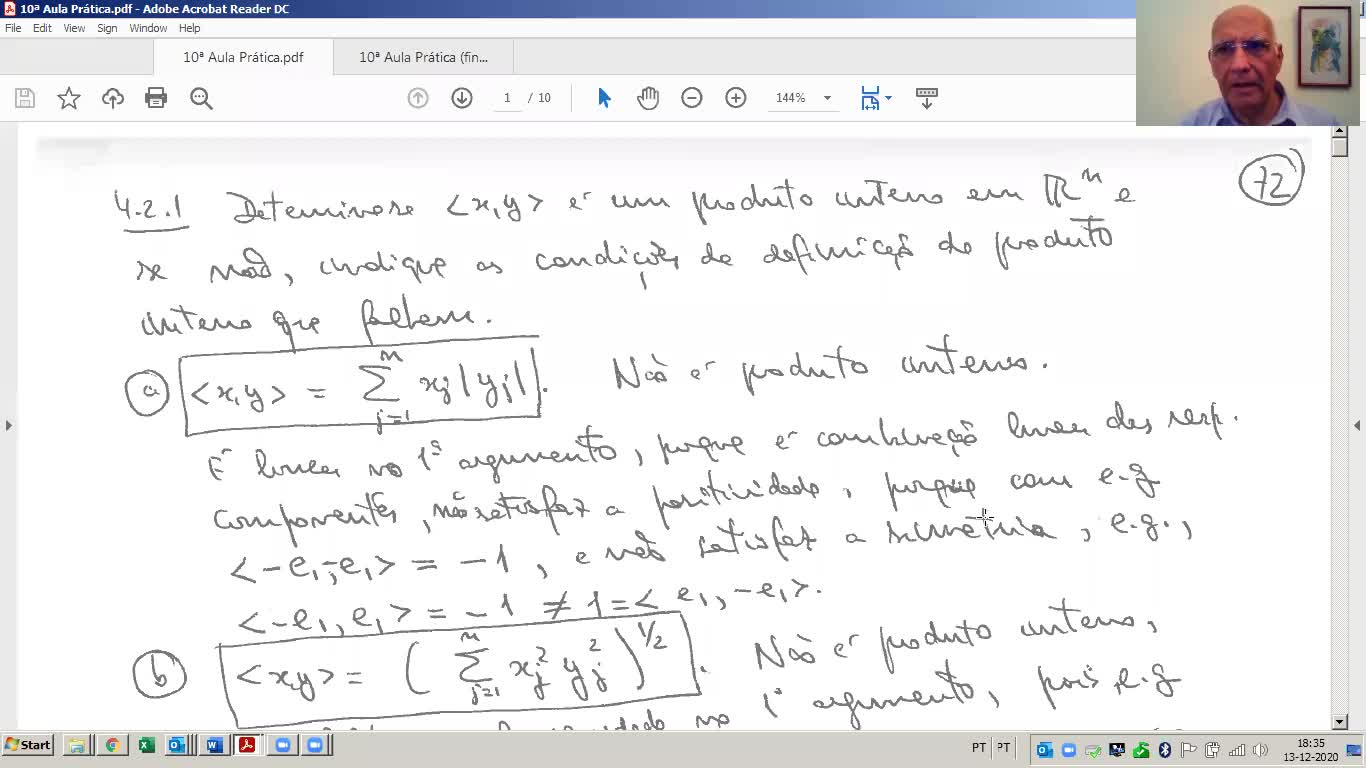 10ª Aula Prática.pdf - Adobe Acrobat Reader DC
File Edit View Sign Window Help
10ª Aula Prática.pdf 10ª Aula Prática (fin...
1 / 10 144%
72
4.2.1 Determine se <x,y> é um produto interno em ℝⁿ e
se não, indique as condições de definição de produto
interno que falham.
a <x,y> = ∑_{j=1}^{n} xj |yj|. Não é produto interno.
É linear no 1º argumento, porque é combinação linear das resp.
componentes, não satisfaz a positividade, porque com e.g
<-e₁,-e₁> = -1, e não satisfaz a simetria, e.g.,
<-e₁,e₁> = -1 ≠ 1 = <e₁,-e₁>.
b <x,y> = ( ∑_{j=1}^{n} xj² yj² )^{1/2}. Não é produto interno,
no 1º argumento, pois, e.g
Start PT PT 18:35
13-12-2020